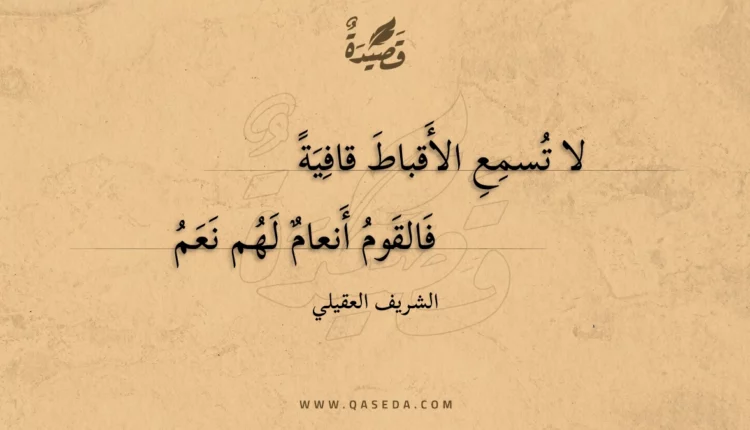 قَصِيْدَةٌ
لا تُسمِعِ الأَقباطَ قافِيَةً
فَالقَومُ أَنعامٌ لَهُم نَعَمُ
الشريف العقيلي
WWW.QASEDA.COM